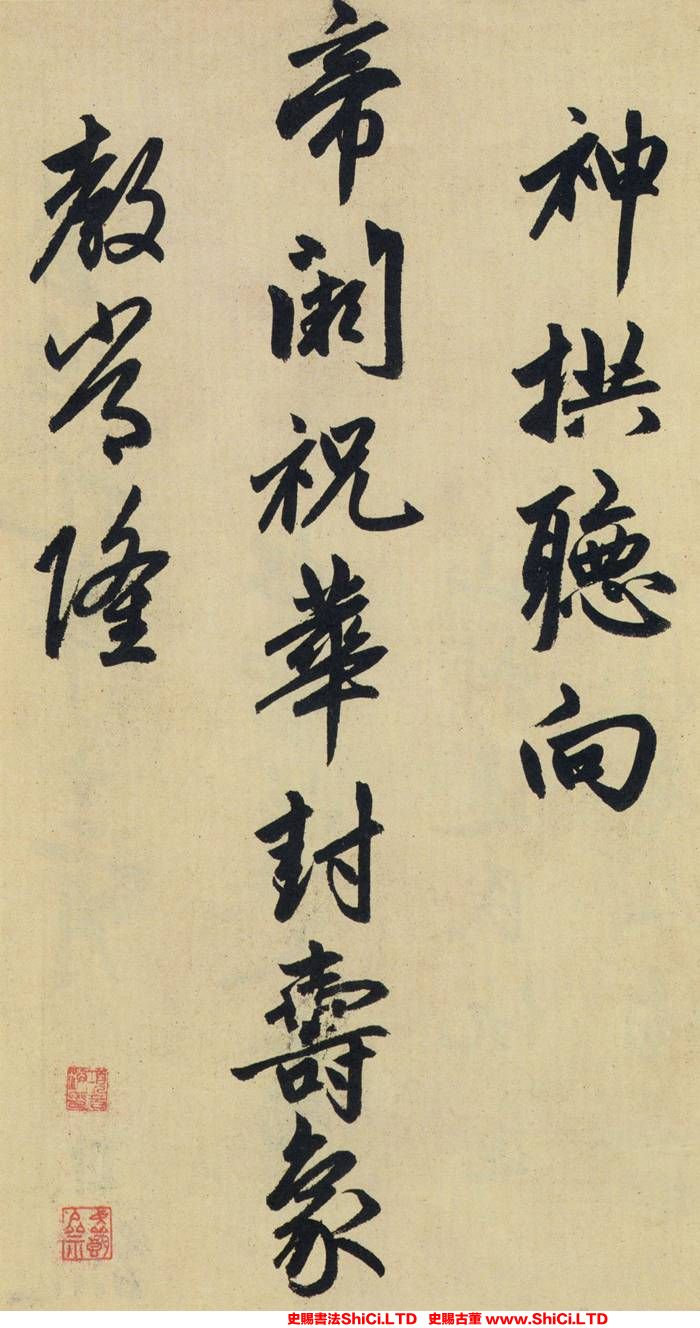 神拱聽向
帝闕祝華封壽象
教常隆
史賜書法ShiCi.LTD 史賜古董 www.ShiCi.LTD